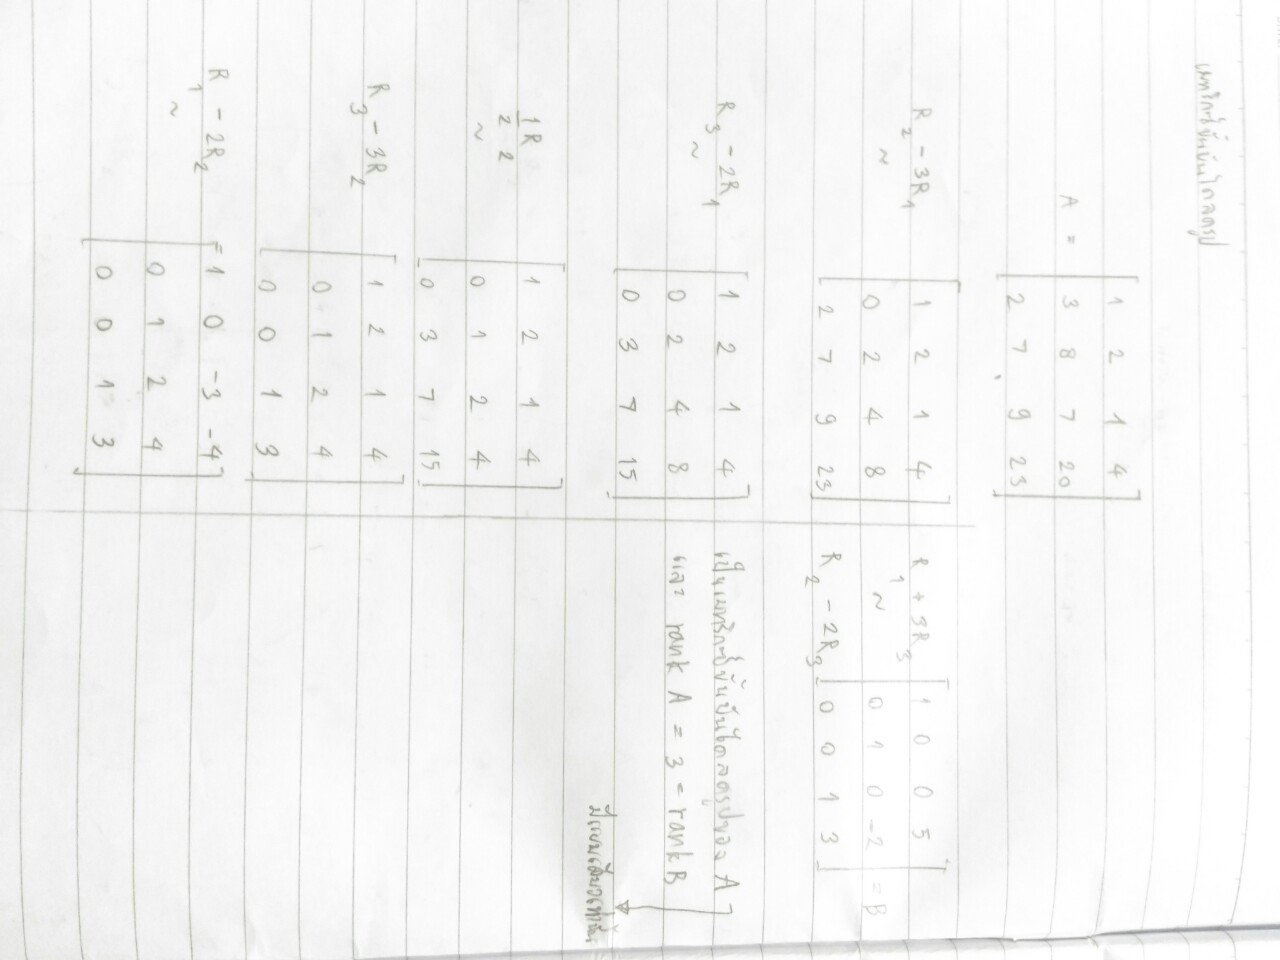 เมทริกซ์ขั้นบันไดลดรูป
1 2 1 4
A = 3 8 7 20
2 7 9 23
R2 - 3R1 1 2 1 4
~ 0 2 4 8
2 7 9 23
R3 - 2R1 1 2 1 4
~ 0 2 4 8
0 3 7 15
1/2 R2 1 2 1 4
~ 0 1 2 4
0 3 7 15
R3 - 3R2 1 2 1 4
0 1 2 4
0 0 1 3
R1 - 2R2 1 0 -3 -4
~ 0 1 2 4
0 0 1 3
R1 + 3R3 1 0 0 5
~ 0 1 0 -2 = B
R2 - 2R3 0 0 1 3
เป็นเมทริกซ์ขั้นบันไดลดรูปของ A
และ rank A = 3 = rank B
มีแบบเดียวเท่านั้น